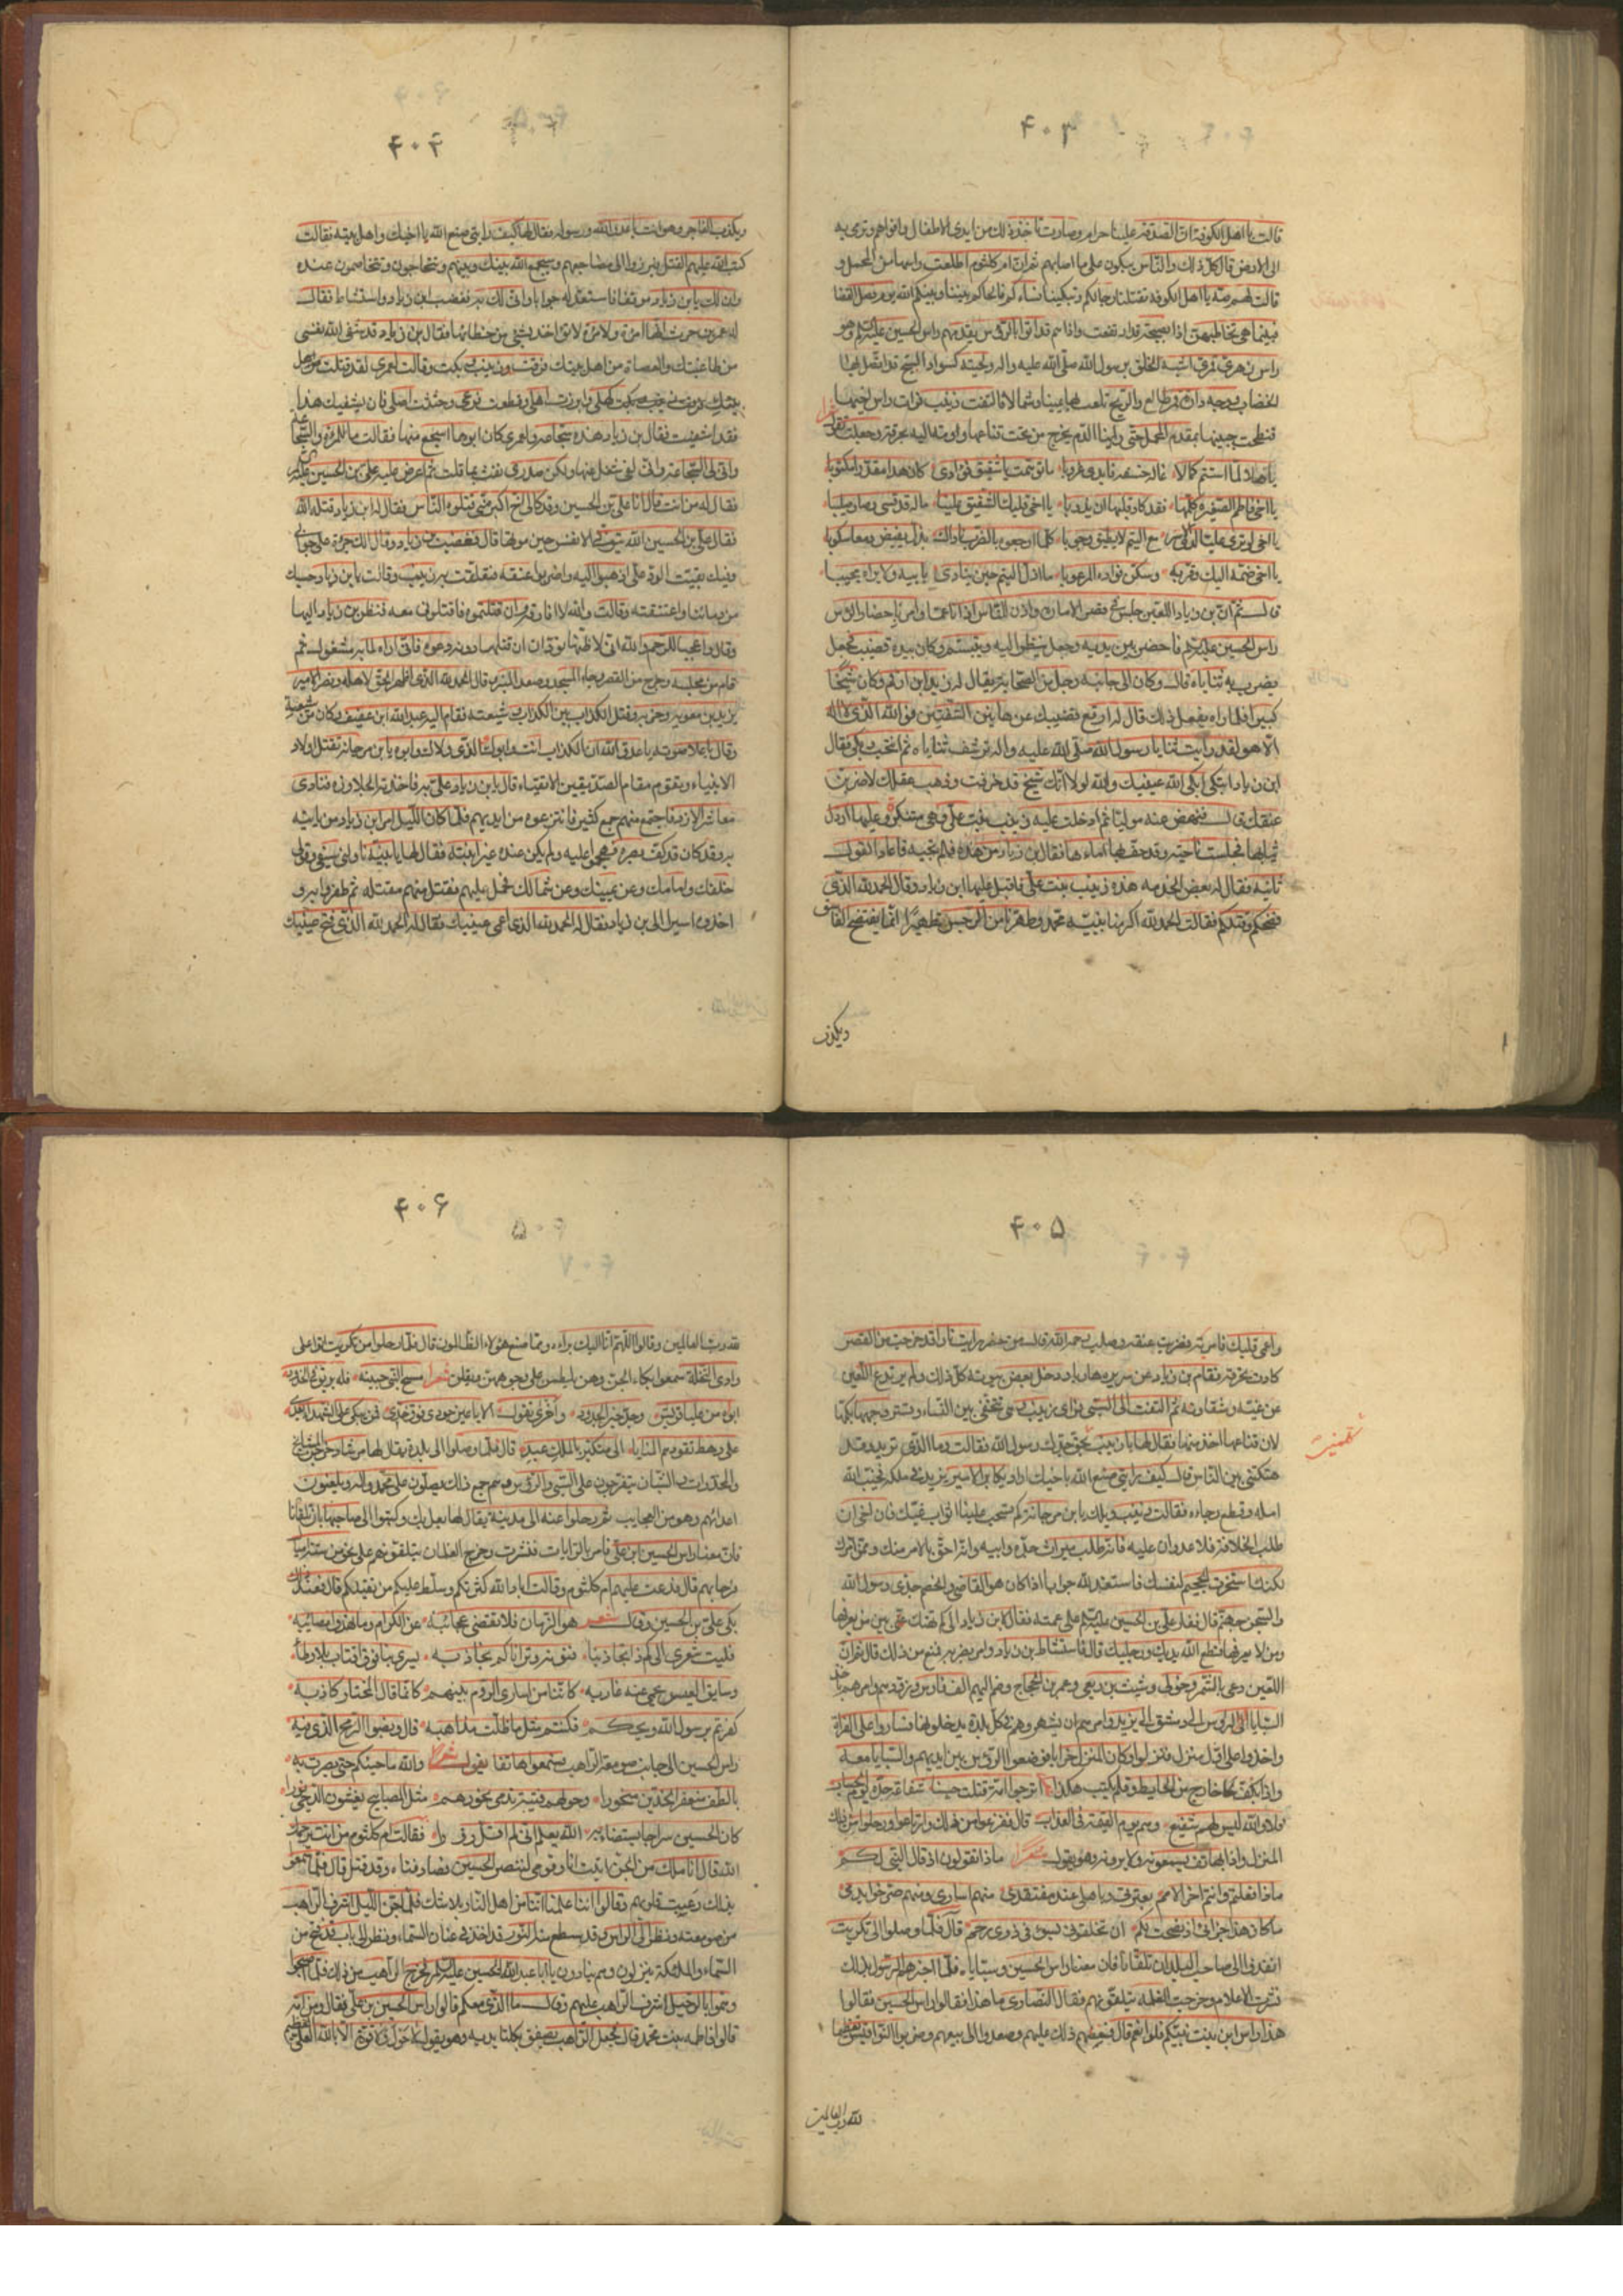 ۴۰۳
قالت يا اهل الكوفة ان الصدقة علينا حرام وصارت تاخذ ذلك من ايدى الاطفال وافواههم وترمى به
الى الارض قال كل ذلك والناس يبكون على ما اصابهم ثم ان ام كلثوم اطلعت راسها من المحمل و
قالت لهم صه يا اهل الكوفة تقتلنا رجالكم وتبكينا نساءكم فالحاكم بيننا وبينكم الله يوم فصل القضا
فبينما هى تخاطبهن اذا بصيحة قد ارتفعت واذا هم قد اتوا بالرؤس يقدمهم راس الحسين عليه السلم وهو
راس زهرى قمرى اشبه الخلق برسول الله صلى الله عليه واله ولحيته كسواد السبج قد اتصل بها
الخضاب ووجهه دارة قمر طالع والريح تلعب بها يمينا وشمالا فالتفت زينب فرات راس اخيها
فنطحت جبينها بمقدم المحمل حتى راينا الدم يخرج من تحت قناعها واومت اليه بحرقة وجعلت تقول شعرا
يا هلالا لما استتم كمالا غاله خسفه فابدى غروبا ما توهمت يا شقيق فؤادى كان هذا مقدرا مكتوبا
يا اخى فاطم الصغيرة كلمها فقد كاد قلبها ان يذوبا يا اخى قلبك الشفيق علينا ماله قد قسى وصار صليبا
يا اخى لو ترى عليا لدى الاسر مع اليتم لا يطيق وجوبا كلما اوجعوه بالضرب ناداك بذل يفيض دمعا سكوبا
يا اخى ضمه اليك وقربه وسكن فواده المرعوبا ما اذل اليتيم حين ينادى بابيه ولا يراه مجيبا
قال ثم ان بن زياد اللعين جلس فى قصر الامارة واذن للناس اذنا عاما وامر باحضار الراس
راس الحسين عليه السلم فاحضر بين يديه وجعل ينظر اليه ويتبسم وكان بيده قضيب فجعل
يضرب به ثناياه قال وكان الى جانبه رجل من الصحابة يقال له زيد ابن ارقم وكان شيخا
كبيرا فلما راه يفعل ذلك قال له ارفع قضيبك عن هاتين الشفتين فوالله الذى لا اله
الا هو لقد رايت ثنايا رسول الله صلى الله عليه واله ترشف ثناياه ثم انتحب يبكى فقال
ابن زياد اتبكى ابكى الله عينيك والله لولا انك شيخ قد خرفت وذهب عقلك لاضربن
عنقك قال فنهض عنه موليا ثم ادخلت عليه زينب بنت على وهى متنكرة وعليها ارذل
ثيابها فجلست ناحية وقد حف بها اماءها فقال بن زياد من هذه فلم تجبه فاعاد القول
ثانية فقال له بعض الخدمه هذه زينب بنت على فاقبل عليها ابن زياد وقال الحمد لله الذى
فضحكم وقتلكم فقالت الحمد لله اكرمنا بنبيه محمد وطهرنا من الرجس تطهيرا انما يفتضح الفاسق
ويكذب
۴۰۴
ويكذب الفاجر وهو انت يا عدو الله ورسوله فقال لها كيف رايتى صنع الله ياخيك واهل بيته فقالت
كتب الله عليهم القتل فبرزوا الى مضاجعهم وسيجمع الله بينك وبينهم وتتحاجون وتتخاصمون عنده
وان لك يابن زياد موقفا فاستعد له جوابا وانى لك به فغضب ابن زياد واستشاط فقال
له عمر بن حريث انها امرئة ولا مرئة لا تؤاخذ بشئ من خطابها فقال بن زياد قد شفى الله نفسى
من طاغيتك والعصاة من اهل بيتك فرقت زينب وبكت وقالت لعمرى لقد قتلت
كهلى وابرزت اهلى وقطعت فرعى واجتثت اصلى فان يشفيك هذا
فقد اشفيت فقال بن زياد هذه سجاعة ولعمرى كان ابوها اسجع منها فقالت ما للمرئة والشجاعة
وانى لى السجاعة وانى لفى شغل عنها ولكن صدرى نفث بما قلت ثم اعرض عليه على بن الحسين عليه السلم
فقال له من انت قال انا على بن الحسين وقد كان لى اخ اكبر منى قتلوه الناس فقال له ابن زياد قتله الله
فقال على بن الحسين الله يتوفى الانفس حين موتها قال فغضب بن زياد وقال الك جرئة على جوابى
وفيك بقيت الرد على اذهبوا اليه واضربوا عنقه فتعلقت به زينب وقالت يابن زياد حسبك
من دمائنا واعتنقته وقالت والله لا افارقه فان قتلتموه فاقتلونى معه فنظر بن زياد اليها
وقال واعجبا للرحم والله انى لاظنها تودان ان قتلها دونه دعوه فانى اراه لما به مشغول ثم
قام من مجلسه وخرج من القصر وجاء المسجد وصعد المنبر وقال الحمد لله الذى اظهر الحق لاهله ونصر الامير
يزيد بن معوية وحزبه وقتل الكذاب بين الكذاب وشيعته فقام اليه عبد الله ابن عفيف وكان من شيعة
وقال باعلا صوته يا عدو الله ان الكذاب انت وابوك والذى ولاك وابوه يا بن مرجانة تقتل اولاد
الانبياء وتقوم مقام الصديقين الاتقياء قال يابن زياد على به فاخذته الجلاوزة فنادى
معاشر الازد فاجتمع منهم جمع كثير فانتزعوه من ايديهم فلما كان الليل امر ابن زياد من ياتيه
به وقد كان قد كف بصره فهجموا عليه ولم يكن عنده غير ابنته فقال لها يا بنية ناولنى سيفى وقولى
خلفك وامامك وعن يمينك وعن شمالك فحمل عليهم فقتل منهم مقتله ثم ظفروا به و
اخذوه اسيرا الى بن زياد فقال له الحمد لله الذى اعمى عينيك فقال له الحمد لله الذى فتح عينيك
۴۰۵
واعمى قلبك فامر به فضربت عنقه وصلب رحمه الله قال من حضر راينا نارا قد خرجت من القصر
كادت تحرقه فقام بن زياد عن سريره هاربا ودخل بعض بيوته كل ذلك ولم يرتدع اللعين
عن غيه وشقاوته ثم التفت الى السبى فراى زينب وهى تتخفى بين النساء وتستر وجهها بكمها
لان قناعها اخذ منها فقال لها يا زينب بحق جدك رسول الله فقالت وما الذى تريد وقد
هتكتنى بين الناس قال كيف رايتى صنع الله باخيك اراد يكابر الامير يزيد فى ملكه فخيب الله
امله وقطع رجاءه فقالت زينب ويلك يا بن مرجانة كم تسحب علينا اثواب غيك فان اخى ان
طلب الخلافة فلا عدوان عليه فانه طلب ميراث جده وابيه وانه احق بالامر منك وممن امرك
لكنك استخرت الجحيم لنفسك فاستعد لله جوابا اذا كان هو القاضى والخصم جدى رسول الله
والسجن جهنم قال فقال على بن الحسين عليه السلم على عمته فقال يا بن زياد الى كم تهتك عمتى بين من يعرفها
ومن لا يعرفها قطع الله يديك ورجليك قال فاستشاط بن زياد وامر بضربه فمنع من ذلك قال ثم ان
اللعين دعى بالشمر وخولى وشبث بن ربعى وعمر بن الحجاج وضم اليهم الف فارس وزودهم وامرهم باخذ
السبايا الى دمشق الى يزيد وامرهم ان يشهروهم فى كل بلدة يدخلونها فساروا على الفراة
واخذوا على اول منزل فنزلوا وكان المنزل خرابا فوضعوا الرؤس بين ايديهم والسبايا معه
واذا بكف خارج من الحايط وقلم يكتب هكذا اترجوا امة قتلت حسينا شفاعة جده يوم الحساب
فلا والله ليس لهم شفيع وهم يوم القيمة فى العذاب قال ففزعوا من ذلك وارتاعوا ورحلوا من ذلك
المنزل واذا بهاتف يسمعونه ولا يرونه وهو يقول شعرا ماذا تقولون اذ قال النبى لكم
ماذا فعلتم وانتم اخر الامم بعترتى وباهلى عند مفتقدى منهم اسارى ومنهم ضرجوا بدمى
ما كان هذا جزائى اذ نصحت لكم ان تخلفونى بسوء فى ذوى رحمى قال فلما وصلوا الى تكريت
انفذوا الى صاحب البلد ان تلقانا فان معنا راس الحسين وسباياه فلما اخبرهم الرسول بذلك
نشرت الاعلام وخرجت الغلمه يتلقونهم فقال النصارى ما هذا فقالوا راس الحسين فقالوا
هذا راس ابن بنت نبيكم قالوا نعم قال فعظم ذلك عليهم وصعدوا الى بيعهم وضربوا النواقيس تعظيما
لله رب العالمين
۴۰۶
لله رب العالمين وقالوا اللهم انا اليك براء مما صنع هؤلاء الظالمون قال فلما رحلوا من تكريت اتوا على
وادى النخلة سمعوا بكاء الجن وهن يلطمن على وجوههن ويقلن شعرا مسح النبى جبينه فله بريق فى الخدود
ابواه من عليا قريش وجده خير الجدود واخرى تقول الا يا عين جودى فوق خدى فمن يبكى على الشهداء بعدى
على رهط تقودهم المنايا الى متكبر بالملك عبدى قال فلما وصلوا الى بلدة يقال لها مرشاد خرج المشايخ
والمخدرات والشبان يتفرجون على السبى والرؤس وهم مع ذلك يصلون على محمد واله ويلعنون
اعدائهم وهو من العجايب ثم رحلوا عنه الى مدينة يقال لها بعلبك وكتبوا الى صاحبها بان تلقانا
فان معنا راس الحسين ابن على فامر بالرايات فنشرت وخرج الغلمان يتلقونهم على نحو من ستة اميال
فرحا بهم قال فدعت عليهم ام كلثوم وقالت اباد الله كثرتكم وسلط عليكم من يقتلكم قال فعند ذلك
بكى على بن الحسين وقال شعر هو الزمان فلا تفنى عجائبه عن الكرام وما تهدى مصائبه
فليت شعرى الى كم ذا تجاذبنا فنونه وترانا كم نجاذبه يسرى بنا فوق اقتاب بلا وطاء
وسايق العيس يحمى عنه غاربه كاننا من اسارى الروم بينهم كانما قال المختار كاذبه
كفرتم برسول الله ويحكم فكنتم مثل ما ظلت مذاهبه قال ونصبوا الرمح الذى فيه
راس الحسين الى جانب صومعة الراهب فسمعوا هاتفا يقول شعرا والله ما جئتكم حتى بصرت به
بالطف منعفر الخدين منحورا وحولهم فتية تدمى نحورهم مثل المصابيح يغشون الدجى نورا
كان الحسين سراجا يستضاء به الله يعلم انى لم اقل زورا فقالت ام كلثوم من انت يرحمك
الله قال انا ملك من الجن اتيت انا وقومى لننصر الحسين فصادفناه وقد قتل قال فلما سمعوا
بذلك رعبت قلوبهم وقالوا اننا علمنا اننا من اهل النار بلا شك فلما جن الليل اشرف الراهب
من صومعته ونظر الى الراس وقد سطع منه النور قد اخذ فى عنان السماء ونظر الى باب قد فتح من
السماء والملائكة ينزلون وهم ينادون يا ابا عبد الله الحسين عليك السلم فجزع الراهب من ذلك فلما اصبحوا
وهموا بالرحيل اشرف الراهب عليهم وقال ما الذى معكم قالوا راس الحسين بن على فقال ومن امه
قالوا فاطمه بنت محمد قال فجعل الراهب يصفق بكلتا يديه وهو يقول لا حول ولا قوة الا بالله العلى العظيم